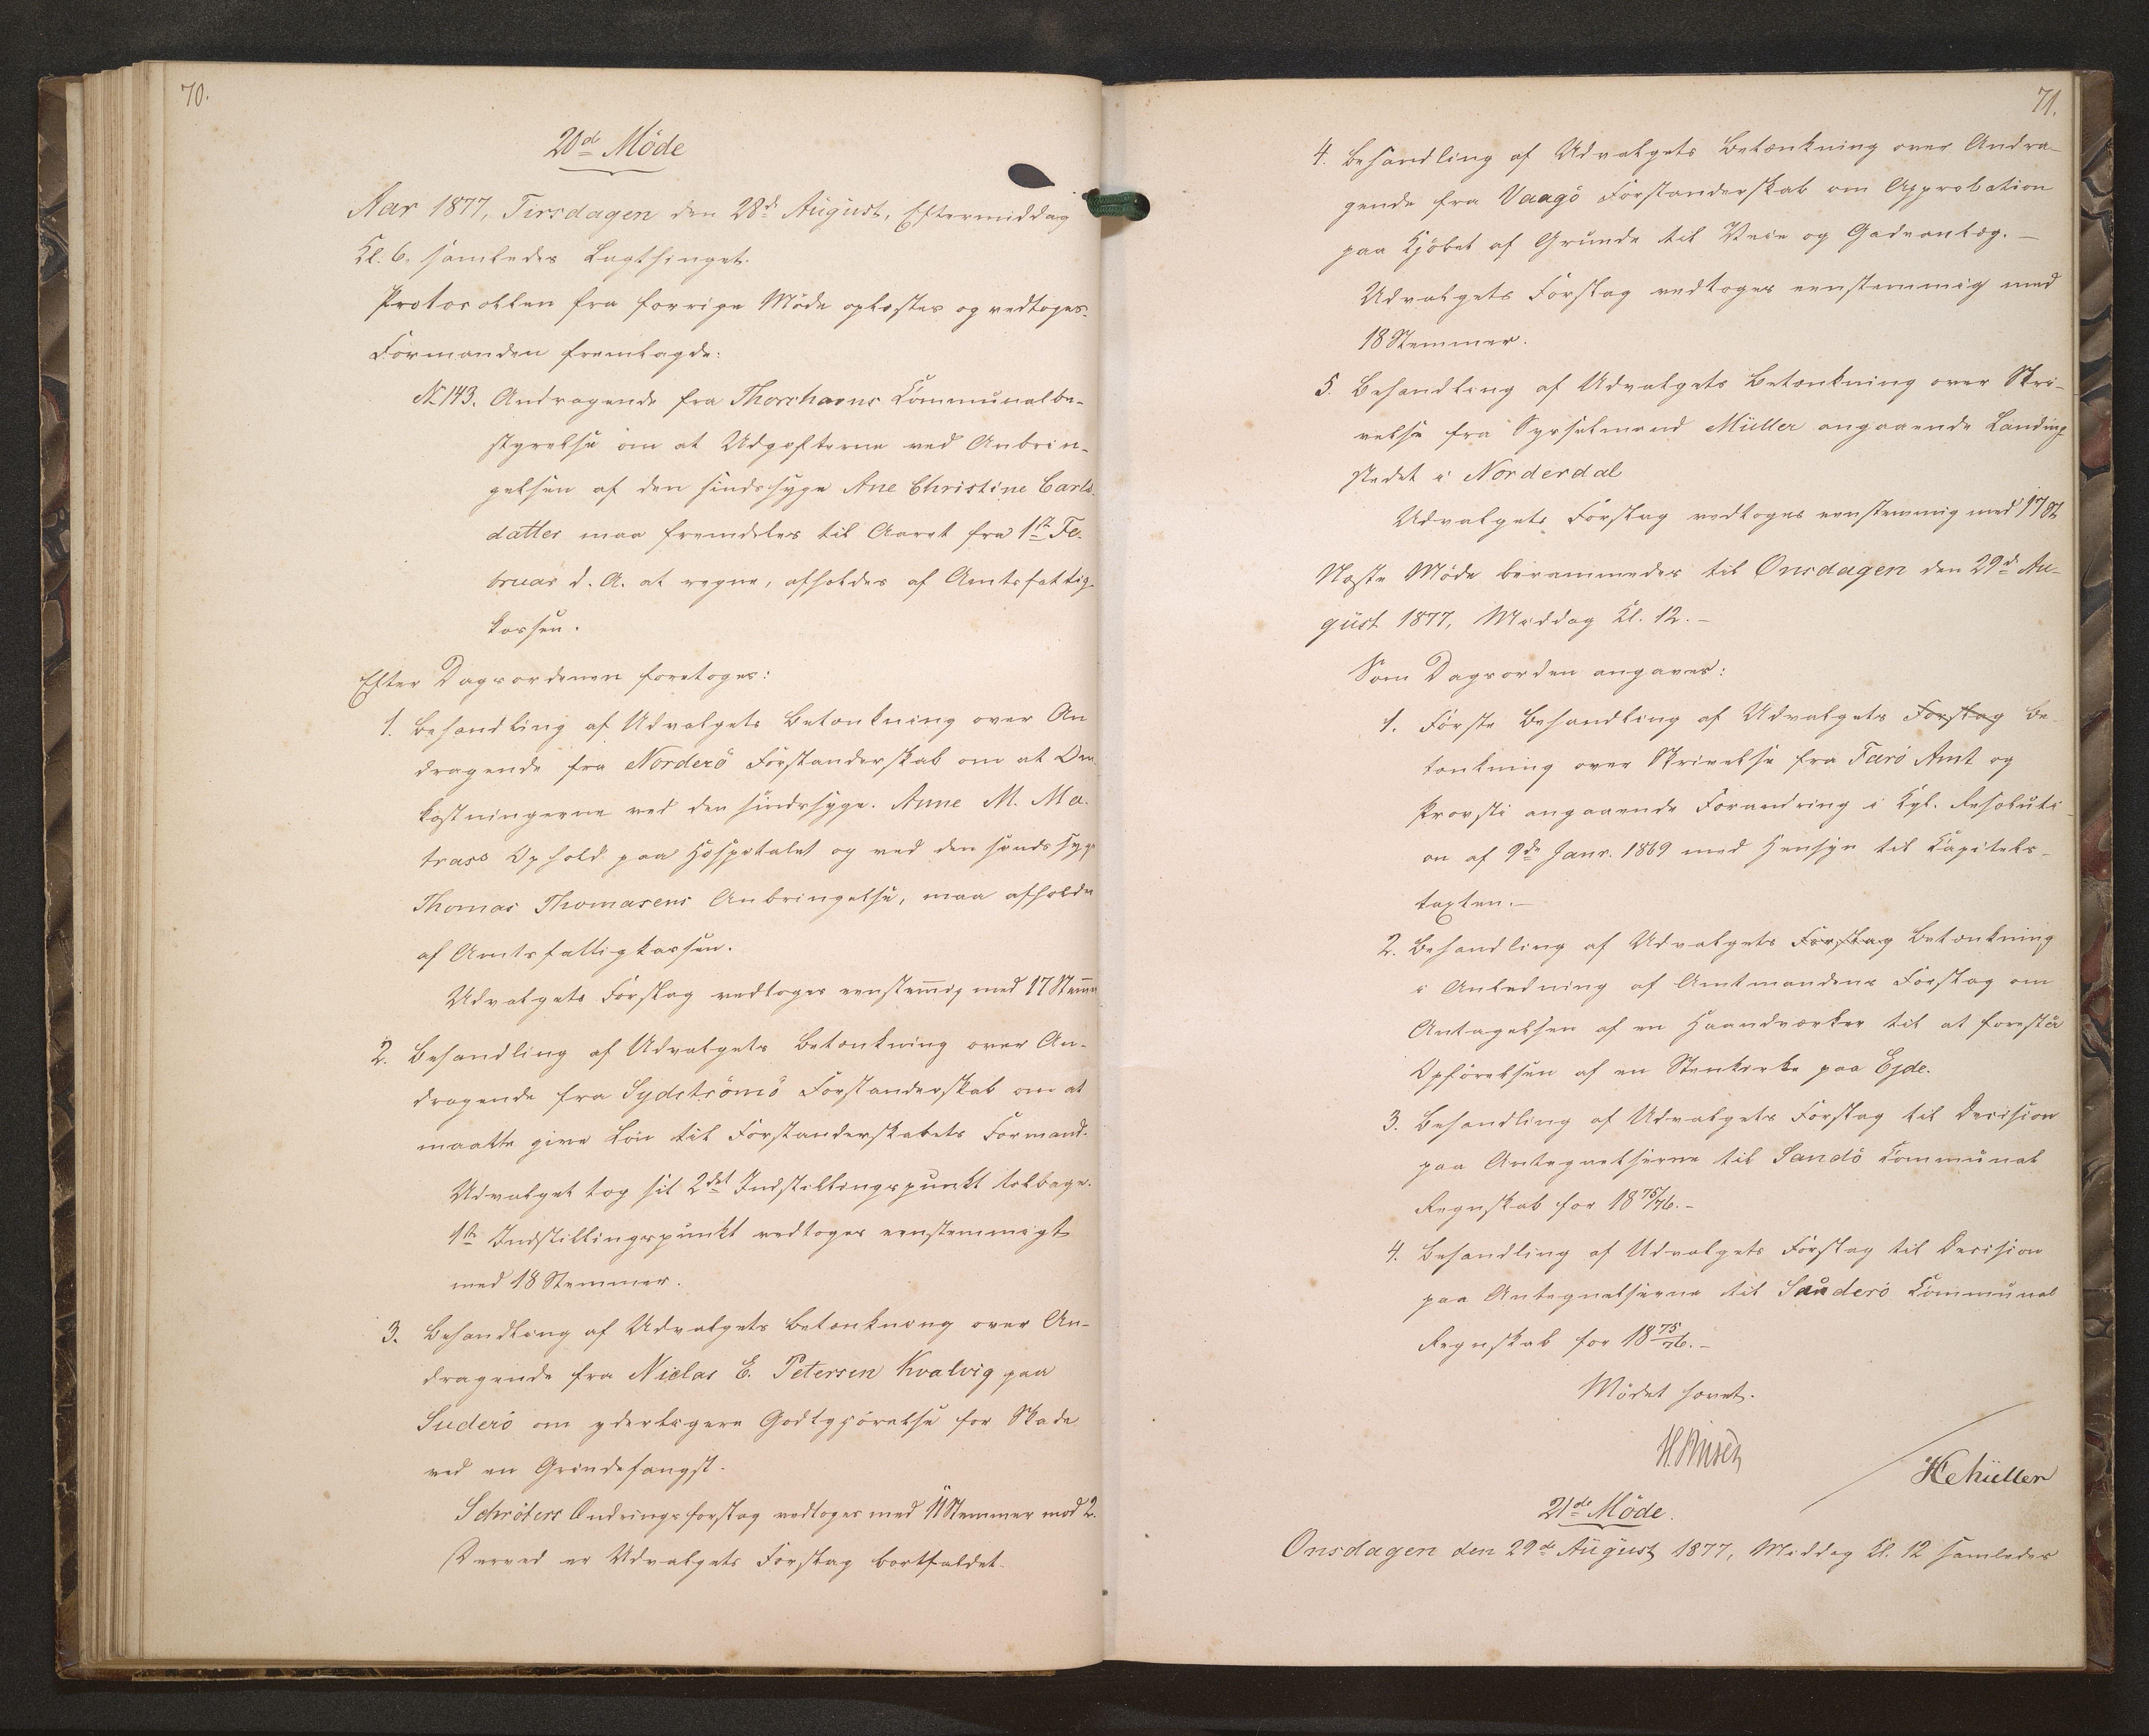 70.
20d Möde
Aar 1877, Tirsdagen den 28d August, Eftermiddag
Kl. 6. samledes Lagthinget.
Protocollen fra forrige Möde oplæstes og vedtoges.
Formanden fremlagde:
№ 143. Andragende fra Thorshavns Communalbe-
styrelse om at Udgifterne ved Anbrin-
gelsen af den sindssyge Ane Christine Carls-
datter maa fremdeles til Aaret fra 1ste Fe-
bruar d. A. at regne, afholdes af Amtsfattig-
kassen.
Efter Dagsordenen foretoges:
1. Behandling af Udvalgets Betænkning over An
dragende fra Norderö Forstanderskab om at Om-
kostningerne ved den sindssyge. Anne M. Ma-
trass Ophold paa Hospitalet og ved den sindssyge
Thomas Thomasens Anbringelse, maa afholdes
af Amtsfattigkassen.
Udvalgets Forslag vedtoges eenstemig med 17 Stemer
2. Behandling af Udvalgets Betænkning over An-
dragende fra Sydströmö Forstanderskab om at
maatte give Lön til Forstanderskabets Formand.
Udvalget tog sit 2det Indstillingspunkt tilbage.
1ste Indstillingspunkt vedtoges eenstemmigt
med 18 Stemmer.
3. Behandling af Udvalgets Betænkning over An-
dragende fra Niclas E. Petersen Kvalvig paa
Suderö om yderligere Godtgjörelse for Skade
ved en Grindefangst.
Schröters Ændringsforslag vedtoges med 11 Stemmer mod 2.
Derved er Udvalgets Forslag bortfaldet.
71.
4. Behandling af Udvalgets Betænkning over Andra-
gende fra Vaagö Forstanderskab om Approbation
paa Kjöbet af Grunde til Veie og Gadeanlæg. —
Udvalgets Forslag vedtoges eenstemmig med
18 Stemmer.
5. Behandling af Udvalgets Betænkning over Skri-
velse fra Sysselmand Müller angaaende Landing
stedet i Norderdal
Udvalgets Forslag vedtoges eenstemmig med 17 St
Næste Möde berammedes til Onsdagen den 29d Au-
gust 1877, Middag Kl. 12. –
Som Dagsorden angaves:
1. Förste Behandling af Udvalgets Forslag Be-
tænkning over Skrivelse fra Færö Amt og
Provsti angaaende Forandring i Kgl. Resoluti-
on af 9de Janr. 1869 med Hensyn til Capitels-
taxten. —
2. Behandling af Udvalgets Forslag Betænkning
i Anledning af Amtmandens Forslag om
Antagelsen af en Haandværker til at forestå
Opförelsen af en Stenkirke paa Ejde.
3. Behandling af Udvalgets Forslag til Decision
paa Antegnelserne til Sandö Communal
Regnskab for 1875/76. –
4. Behandling af Udvalgets Forslag til Decision
paa Antegnelserne til Suderö Communal
Regnskab for 1875/76. –
Mödet hævet.
HMüller
21de Möde.
Onsdagen den 29de August 1877, Middag Kl. 12 samledes